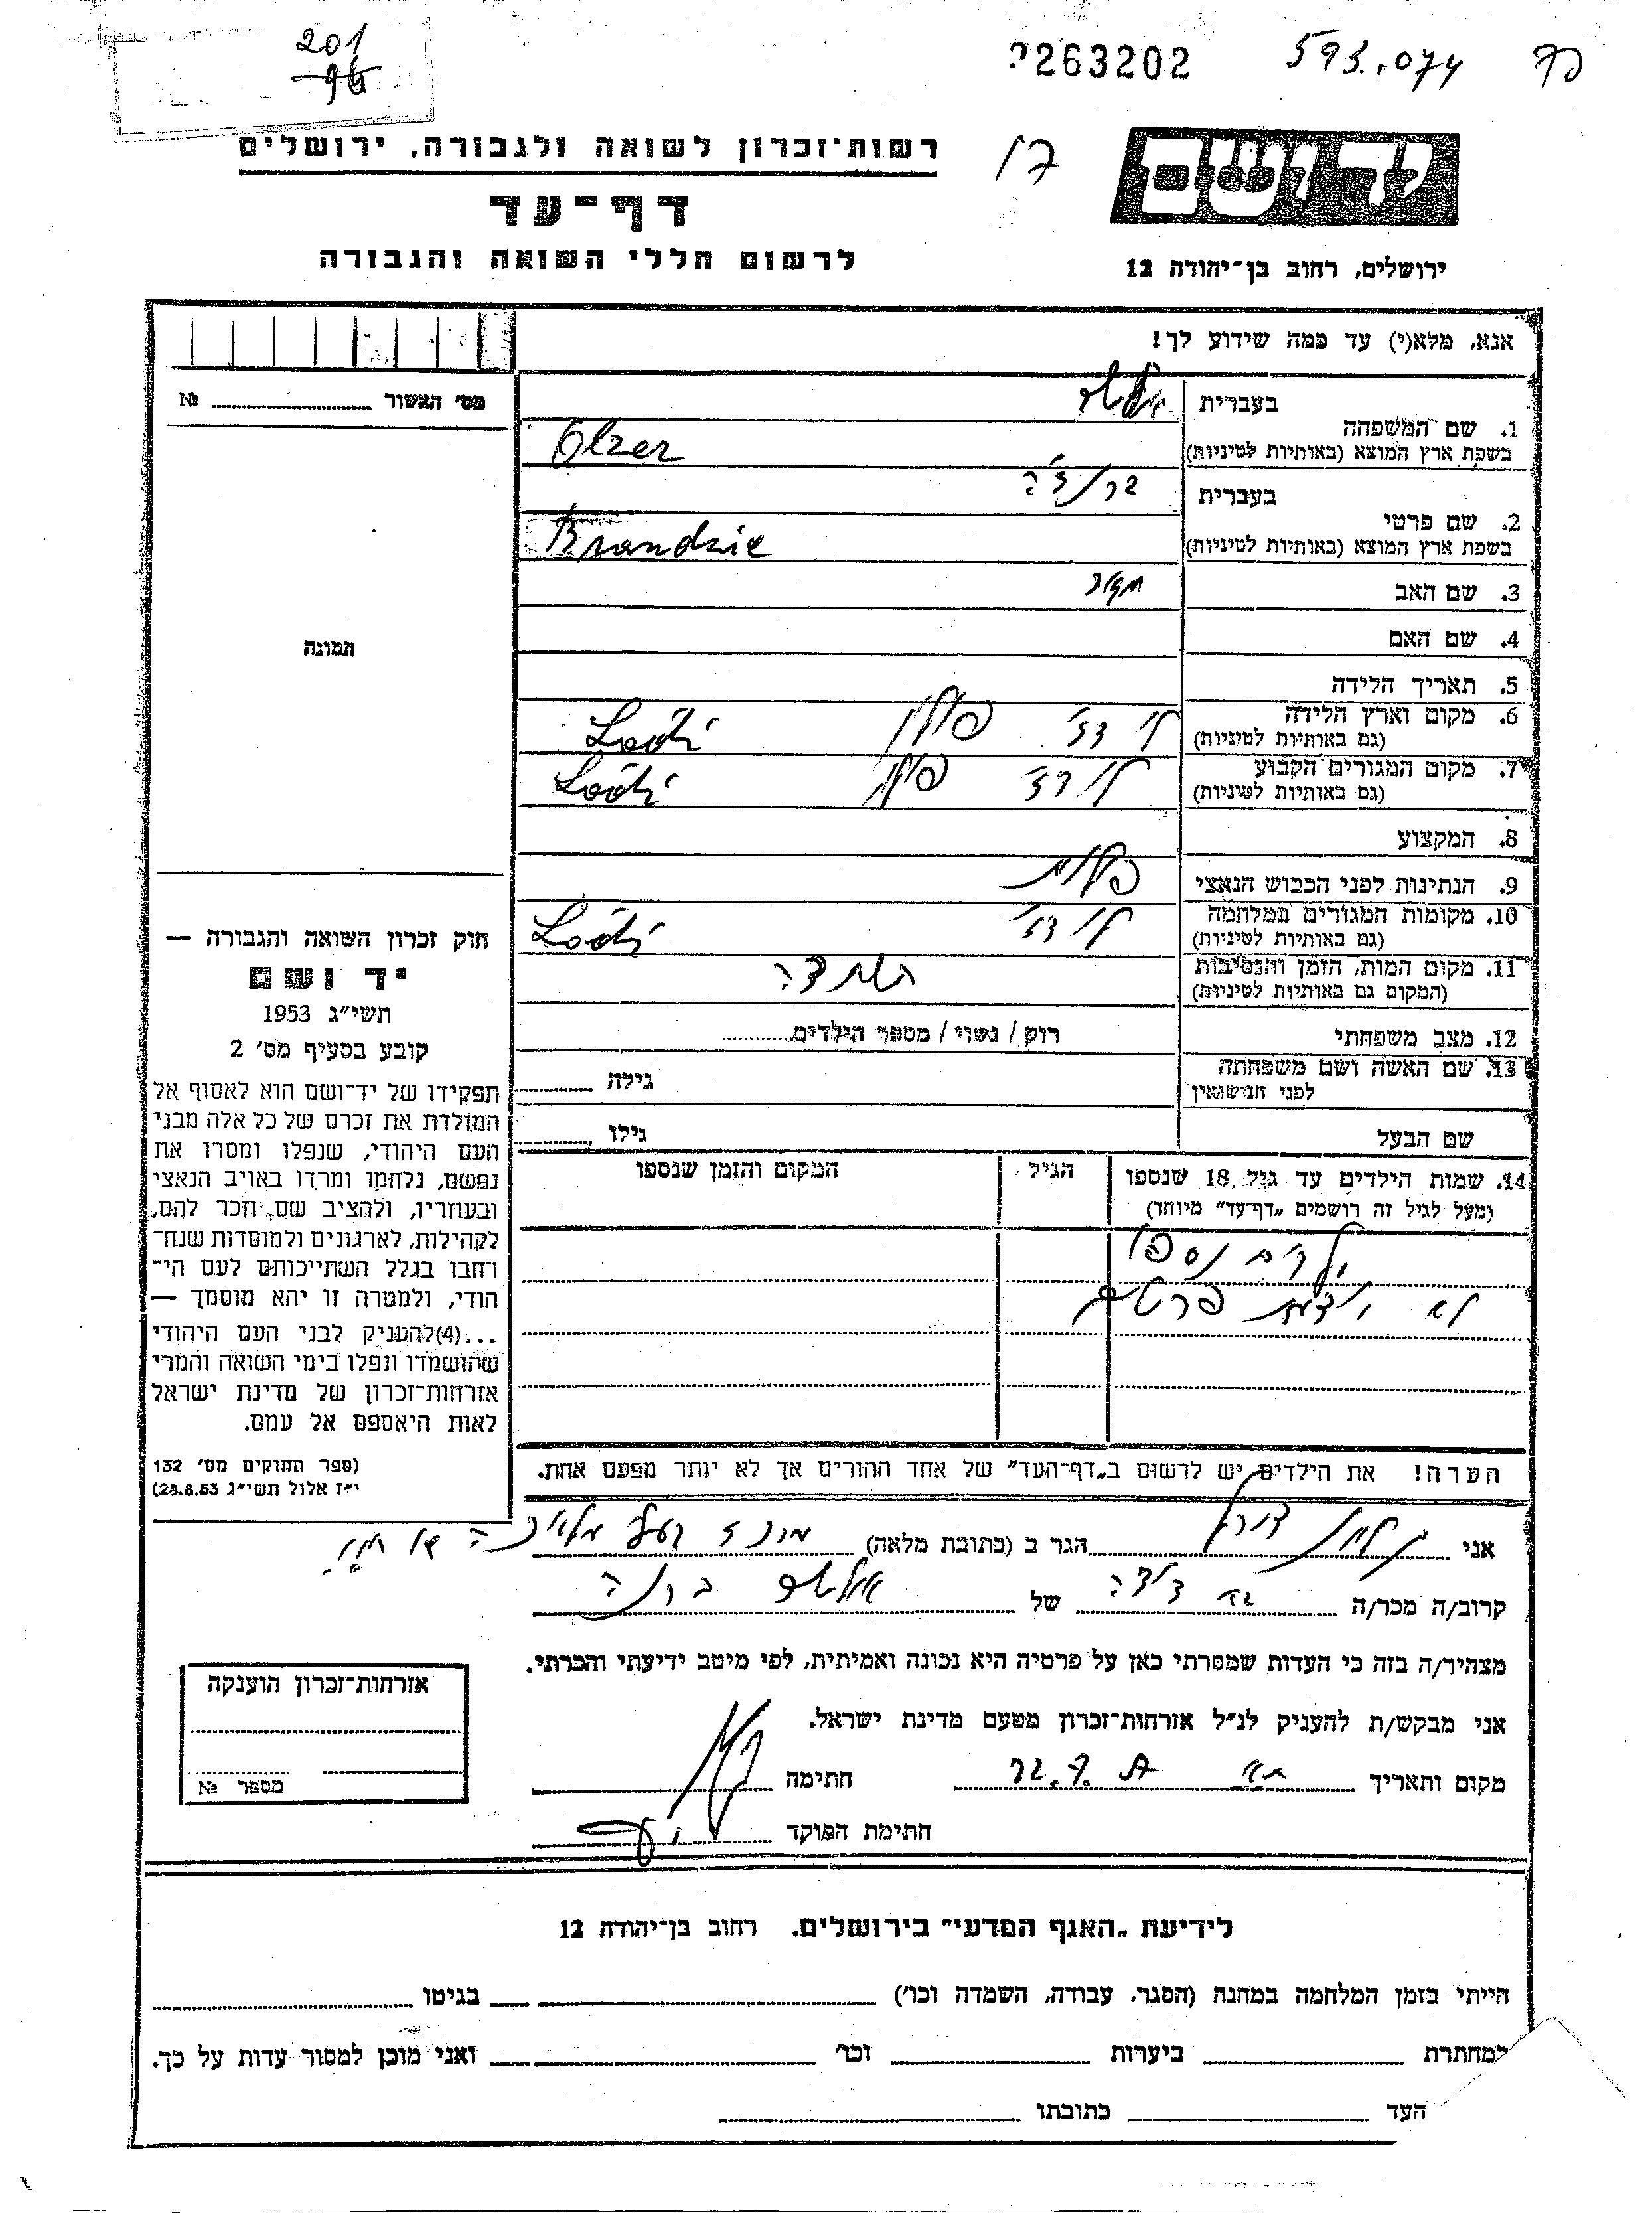 201
96
263202
593.074
17
רשות־זכרון לשואה ולגבורה, ירושלים
יד ושם
דף־עד
לרשום חללי השואה והגבורה
ירושלים, רחוב בן־יהודה 12
אנא, מלא(י) עד כמה שידוע לך!
מס׳ האשור № 
1. שם המשפחה
בעברית
בשפת ארץ המוצא (באותיות לטיניות) Olzer
2. שם פרטי
בעברית
בשפת ארץ המוצא (באותיות לטיניות) Brandzie
3. שם האב מאיר
4. שם האם
תמונה
5. תאריך הלידה
6. מקום וארץ הלידה לודז׳ פולין Lodź
(גם באותיות לטיניות)
7. מקום המגורים הקבוע לודז׳ פולין Lodź
(גם באותיות לטיניות)
8. המקצוע
9. הנתינות לפני הכבוש הנאצי פולנית
10. מקומות המגורים במלחמה לודז׳ Lodź
(גם באותיות לטיניות)
11. מקום המות, הזמן והנסיבות השמדה
(המקום גם באותיות לטיניות)
12. מצב משפחתי רוק / נשוי / מספר הילדים
13. שם האשה ושם משפחתה גילה
לפני הנישואין
שם הבעל גילו
14. שמות הילדים עד גיל 18 שנספו הגיל המקום והזמן שנספו
(מעל לגיל זה רושמים „דף־עד” מיוחד)
ילדים נספו
לא יודעת פרטים
חוק זכרון השואה והגבורה —
יד ושם
תשי״ג 1953
קובע בסעיף מס׳ 2
תפקידו של יד־ושם הוא לאסוף אל
המולדת את זכרם של כל אלה מבני
העם היהודי, שנפלו ומסרו את
נפשם, נלחמו ומרדו באויב הנאצי
ובעוזריו, ולהציב שם וזכר להם,
לקהילות, לארגונים ולמוסדות שנח־
רחבו בגלל השתייכותם לעם הי־
הודי, ולמטרה זו יהא מוסמך —
...(4)להעניק לבני העם היהודי
שהושמדו ונפלו בימי השואה והמרי
אזרחות־זכרון של מדינת ישראל
לאות היאספם אל עמם.
(ספר החוקים מס׳ 132
י״ז אלול תשי״ג 28.8.53)
הערה! את הילדים יש לרשום ב„דף־העד” של אחד ההורים אך לא יותר מפעם אחת.
אני הגר ב (כתובת מלאה)
קרוב/ה מכר/ה בת דודה של
מצהיר/ה בזה כי העדות שמסרתי כאן על פרטיה היא נכונה ואמיתית, לפי מיטב ידיעתי והכרתי.
אני מבקש/ת להעניק לנ״ל אזרחות־זכרון מטעם מדינת ישראל.
מקום ותאריך חתימה
חתימת הפוקד
אזרחות־זכרון הוענקה
מספר №
לידיעת „האגף המדעי” בירושלים. רחוב בן־יהודה 12
הייתי בזמן המלחמה במחנה (הסגר, עבודה, השמדה וכו׳) בגיטו
במחתרת ביערות וכו׳ ואני מוכן למסור עדות על כך.
העד כתובתו